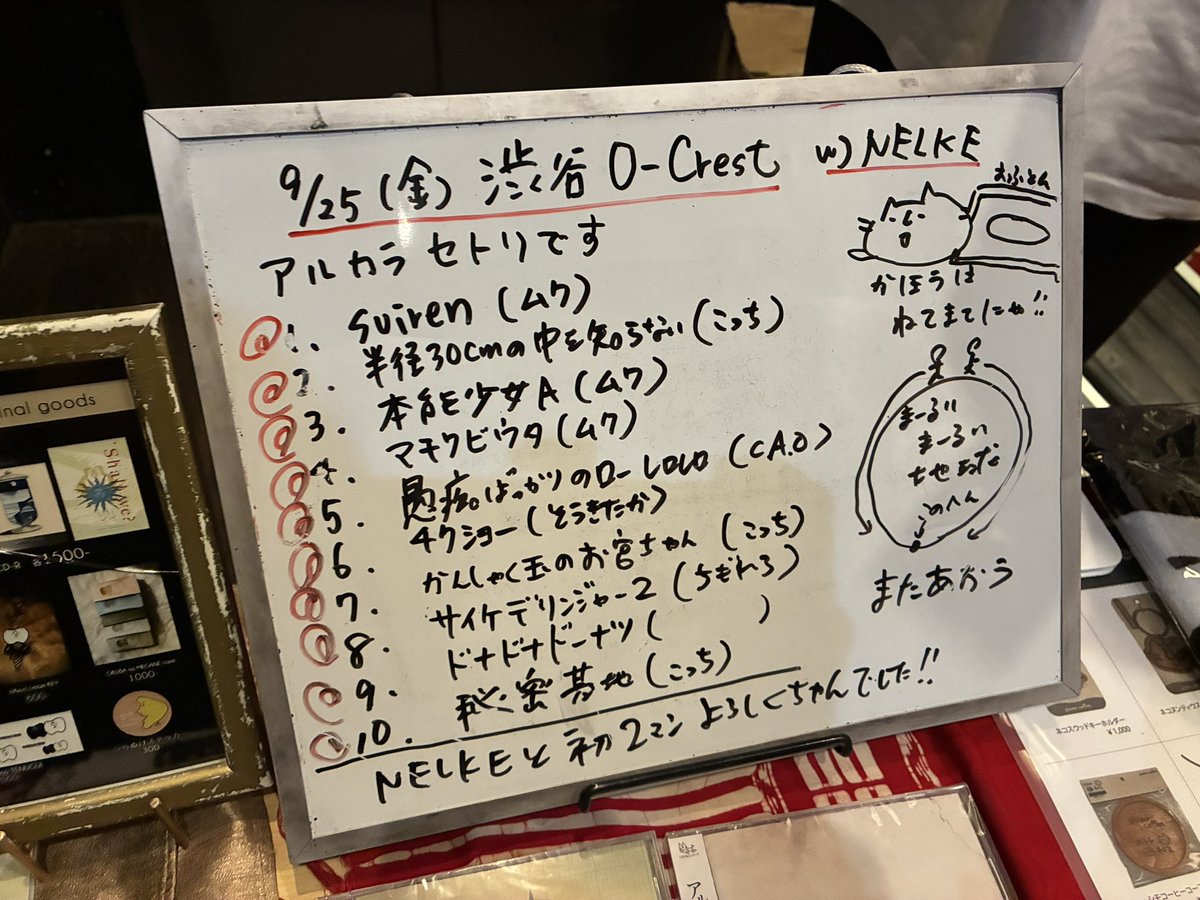 9/25(金) 渋谷 O-Crest
w) NELKE
アルカラ セトリです
1. suiren (ムク)
2. 半径30cmの中を知らない (こっち)
3. 本能少女A (ムク)
4. マキクビウタ (ムク)
5. ばっかりのD- LOLO (C.A.O)
6. チクショー (とうきたか)
7. かんしゃく玉のお宮ちゃん (こっち)
8. サイケデリンジャー2 (ちぎれろ)
9. ドナドナドーナツ ( )
10. 秘密基地 (こっち)
NELKEと初2マン よろしくちゃんでした!!
おふとん
かほうは
ねてまてにゃ!!
まーるい
まーるい
このへん
またあおう
nal goods
Shall
eye?
CD-R 各1500-
1000-
800-
300
ネコスウッドキーホルダー
¥1,000
シモコーヒーコー
アル